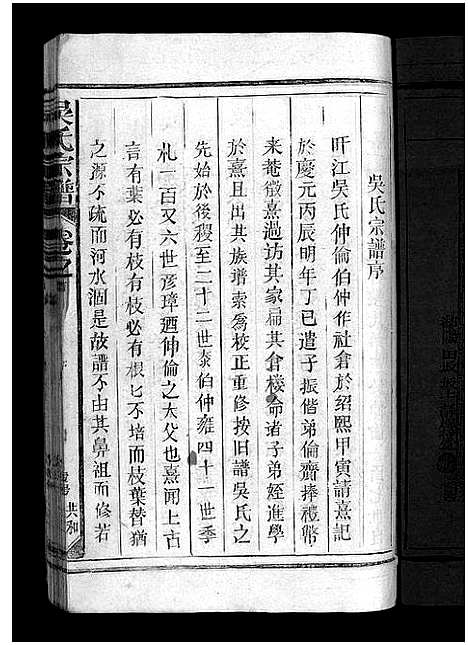 吳氏宗譜序
旴江吳氏仲倫伯仲作社倉於紹熙甲寅請熹記
於慶元丙辰明年丁巳遣子振偕弟倫齋捧禮幣
来菴徵熹過訪其家扁其倉樓命诸子弟姪進學
於熹且出其族谱索為校正重修按旧譜吳氏之
先始於後稷至二十二世泰伯仲雍四十一世季
札一百又六世彦璋廼仲倫之大父也熹闻上古
言有葉必有枝有枝必有根匕不培而枝葉替猶
之源不疏而河水涸是故譜不由其鼻祖而修若
吳氏宗譜
卷之
共和